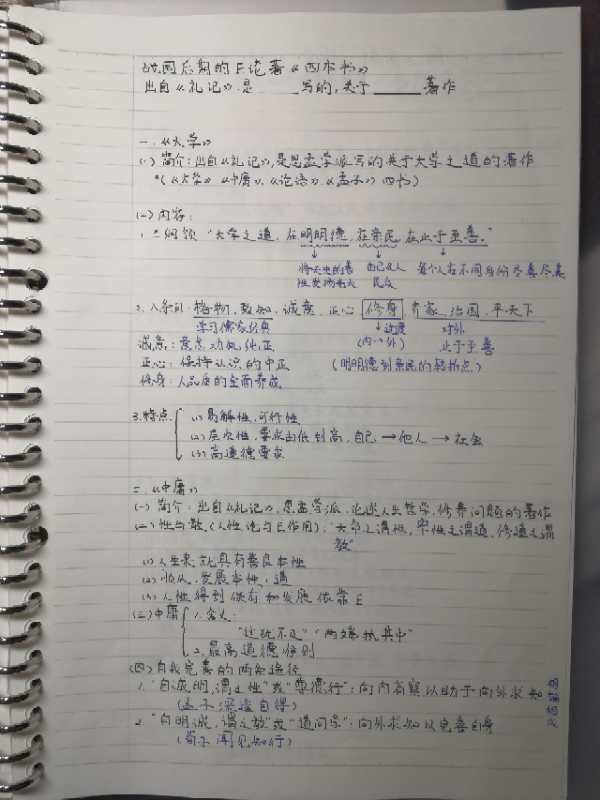 战国后期的E论著《四本书》
出自《礼记》是____写的,关于____著作
一.《大学》
(一)简介:出自《礼记》,是思孟学派写的关于大学之道的著作
*(《大学》《中庸》、《论语》《孟子》四书)
(二)内容:
1.三纲领 "大学之道,在明明德,在亲民,在止于至善."
将天生的善 由己及人 每个人在不同身份尽善尽美
性发扬光大 民众
2.八条目:格物,致知,诚意,正心 修身 齐家 治国,平天下
学习儒家经典 过渡 对外
诚意:意念动机纯正 (内→外) 止于至善
正心:保持认识的中正 (明明德到亲民的转折点)
修身:人品质的全面养成
3.特点 (1)易解性,可行性
(2)层次性,要求由低到高,自己→他人→社会
(3)高道德要求
二.《中庸》
(一)简介:出自《礼记》,思孟学派,论述人生哲学,修养问题的著作
(二)性与教(人性论与E作用):"天命之谓性,率性之谓道,修道之谓
教"
(1)人生来就具有善良本性
(2)顺从,发展本性,道
(3)人性得到保存和发展依靠E
(三)中庸 1.含义:
"过犹不及""两端执其中"
2.最高道德准则
(四)自我完善的两条途径
1."自诚明,谓之性"或"尊德行":向内省察以助于向外求知
(孟子深造自得)
2."自明诚,谓之教"或"道问学":向外求知以完善自身
(荀子闻见知行)